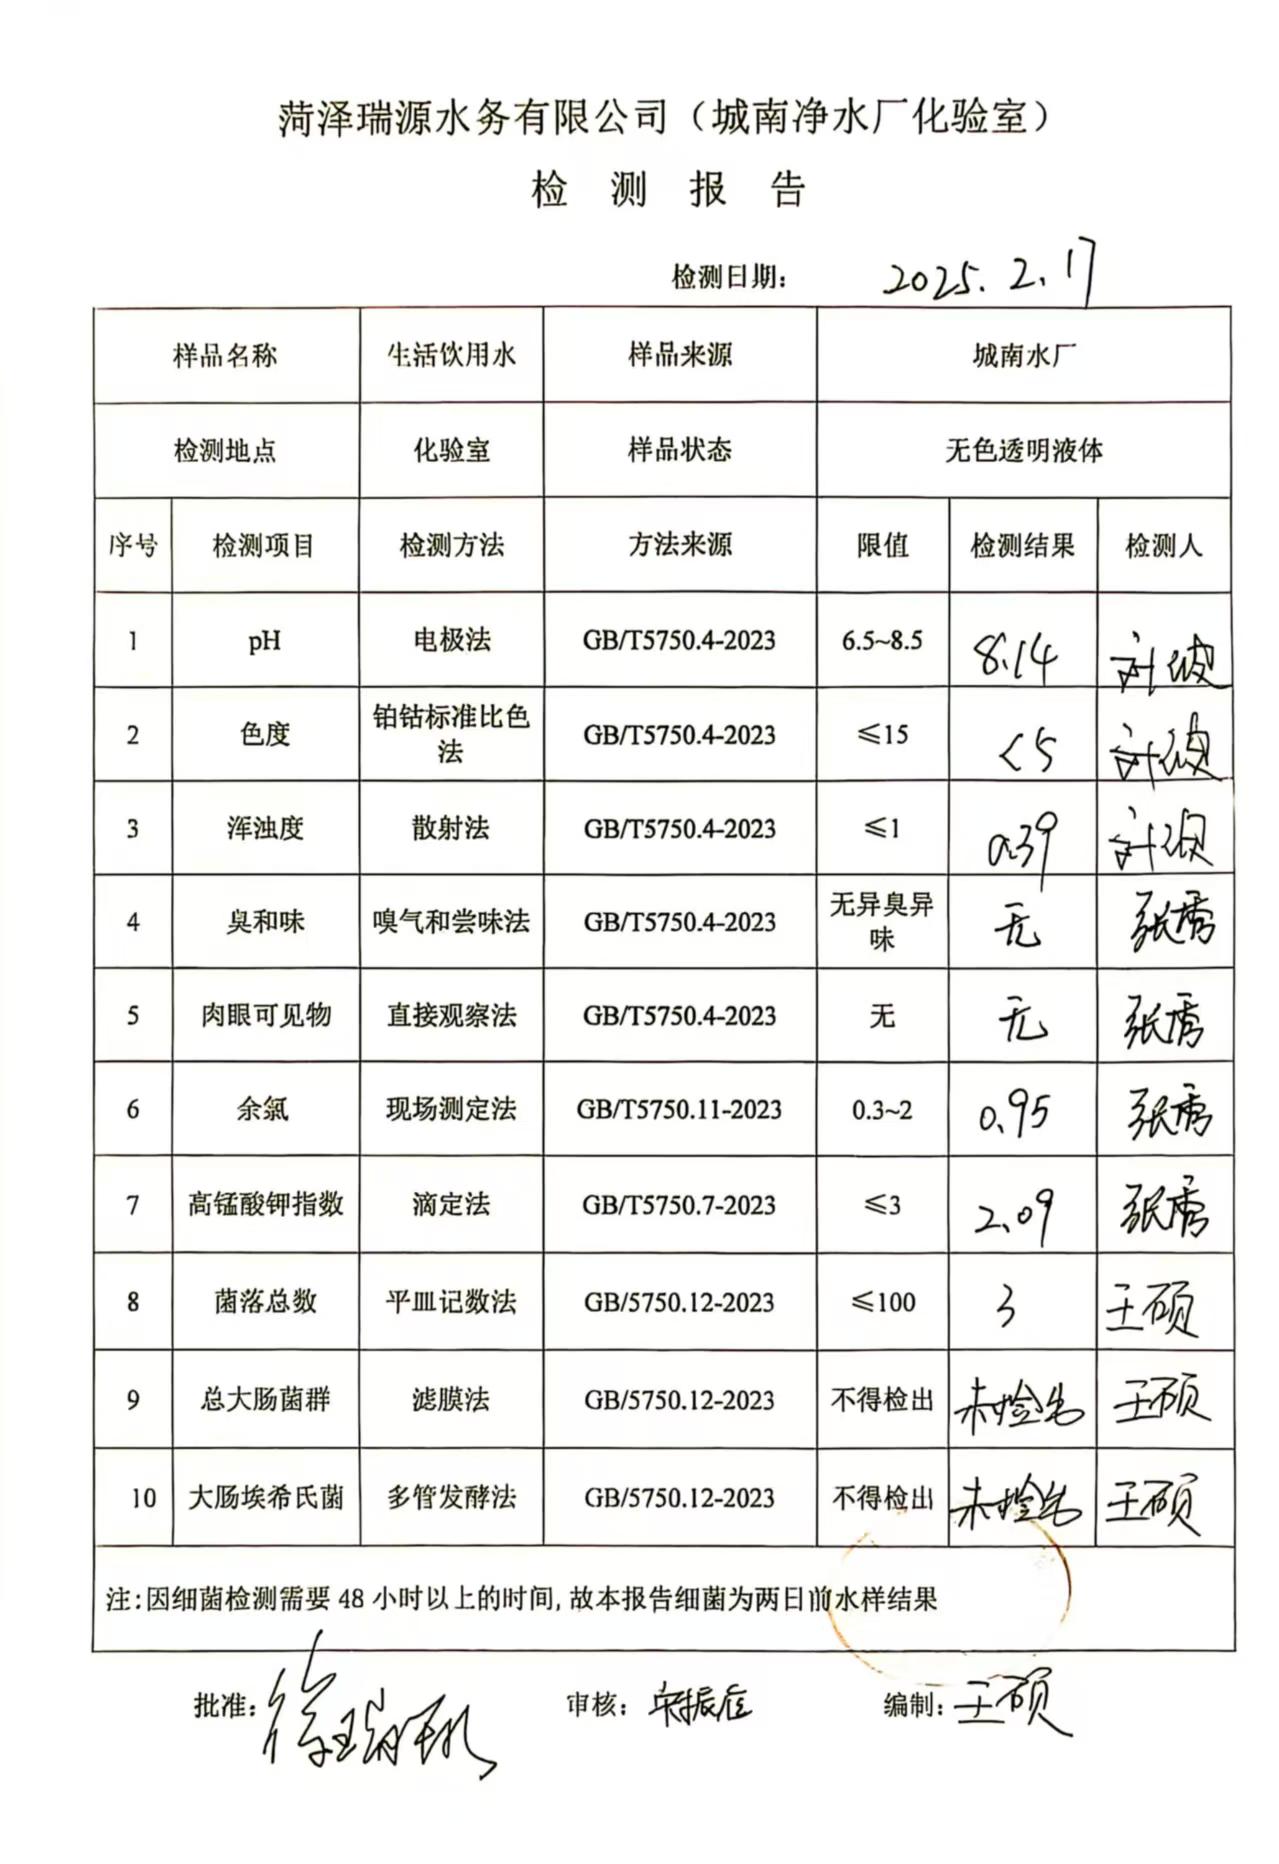 菏泽瑞源水务有限公司（城南净水厂化验室）
检 测 报 告
检测日期： 2025.2.17
样品名称 生活饮用水 样品来源 城南水厂
检测地点 化验室 样品状态 无色透明液体
序号 检测项目 检测方法 方法来源 限值 检测结果 检测人
1 pH 电极法 GB/T5750.4-2023 6.5~8.5 8.14 刘
2 色度 铂钴标准比色法 GB/T5750.4-2023 ≤15 <5 刘
3 浑浊度 散射法 GB/T5750.4-2023 ≤1 0.39 刘
4 臭和味 嗅气和尝味法 GB/T5750.4-2023 无异臭异味 无 张秀
5 肉眼可见物 直接观察法 GB/T5750.4-2023 无 无 张秀
6 余氯 现场测定法 GB/T5750.11-2023 0.3~2 0.95 张秀
7 高锰酸钾指数 滴定法 GB/T5750.7-2023 ≤3 2.09 张秀
8 菌落总数 平皿记数法 GB/5750.12-2023 ≤100 3 王硕
9 总大肠菌群 滤膜法 GB/5750.12-2023 不得检出 未检出 王硕
10 大肠埃希氏菌 多管发酵法 GB/5750.12-2023 不得检出 未检出 王硕
注：因细菌检测需要 48 小时以上的时间，故本报告细菌为两日前水样结果
批准： 审核： 编制：王硕